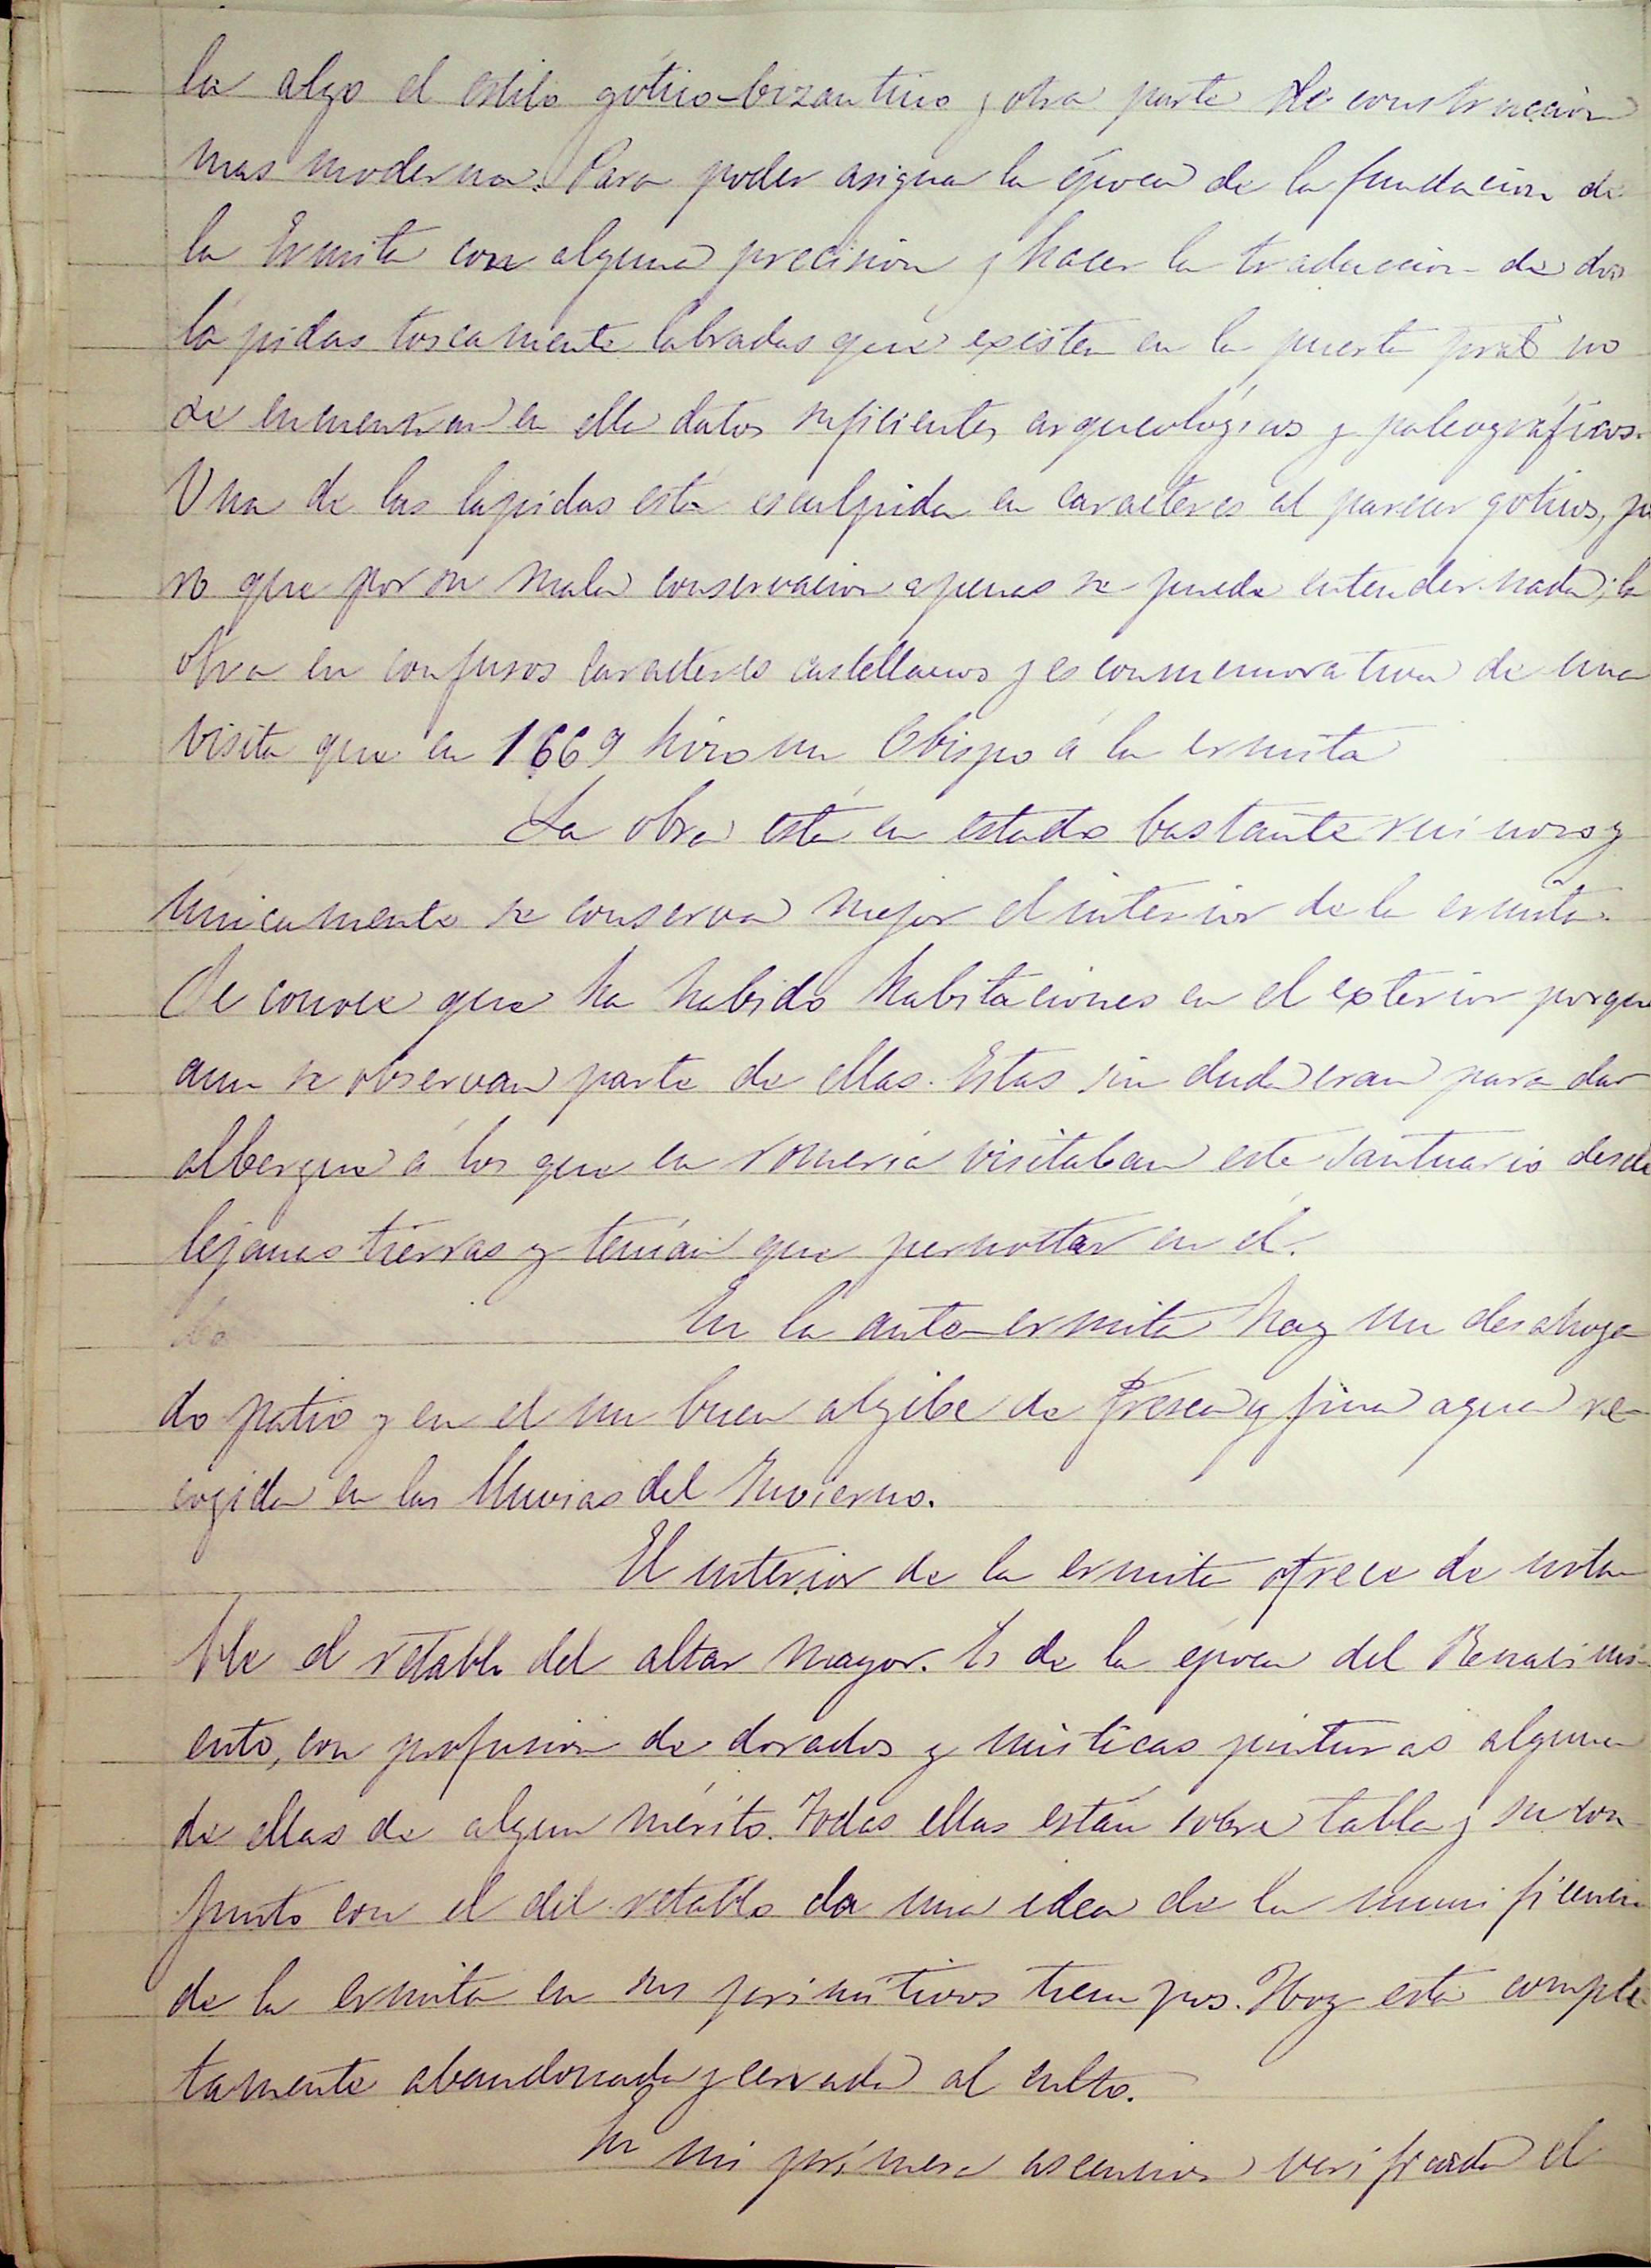 la algo el estilo gótico-bizantino y otra parte de construccion
mas moderna. Para poder asignar la época de la fundacion de
la Ermita con alguna precision y hacer la traduccion de dos
lápidas toscamente labradas que existen en la puerta pral no
se encuentran en ella datos suficientes arqueológicos y paleográficos.
Una de las lapidas está esculpida en caracteres al parecer goticos, pe
ro que por su mala conservacion apenas se puede entender nada; la
otra en confusos caracteres castellanos y es conmemorativa de una
visita que en 1669 hizo un Obispo á la ermita
La obra está en estado bastante ruinoso y
únicamente se conserva mejor el interior de la ermita.
Se conoce que ha habido habitaciones en el exterior porque
aun se observan parte de ellas. Estas sin duda eran para dar
albergue á los que en romeria visitaban este santuario desde
lejanas tierras y tenian que pernoctar en él.
En la ante-ermita hay un desahoga
do patio y en el un buen algibe de fresca y fina agua re-
cogida en las lluvias del Invierno.
El interior de la ermita ofrece de nota
ble el retablo del altar mayor. Es de la época del Renacimi-
ento, con profusion de dorados y misticas pinturas alguna
de ellas de algun mérito. Todas ellas están sobre tabla y su con
junto con el del retablo da una idea de la munificencia
de la ermita en sus primitivos tiempos. Hoy está comple
tamente abandonada y cerrada al culto.
En mi primera ascension verificada el